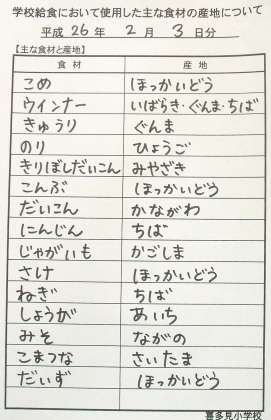 学校給食において使用した主な食材の産地について
平成 26 年 2 月 3 日分
【主な食材と産地】
食材 産地
こめ ほっかいどう
ウインナー いばらき・ぐんま・ちば
きゅうり ぐんま
のり ひょうご
きりぼしだいこん みやざき
こんぶ ほっかいどう
だいこん かながわ
にんじん ちば
じゃがいも かごしま
さけ ほっかいどう
ねぎ ちば
しょうが あいち
みそ ながの
こまつな さいたま
だいず ほっかいどう
喜多見小学校